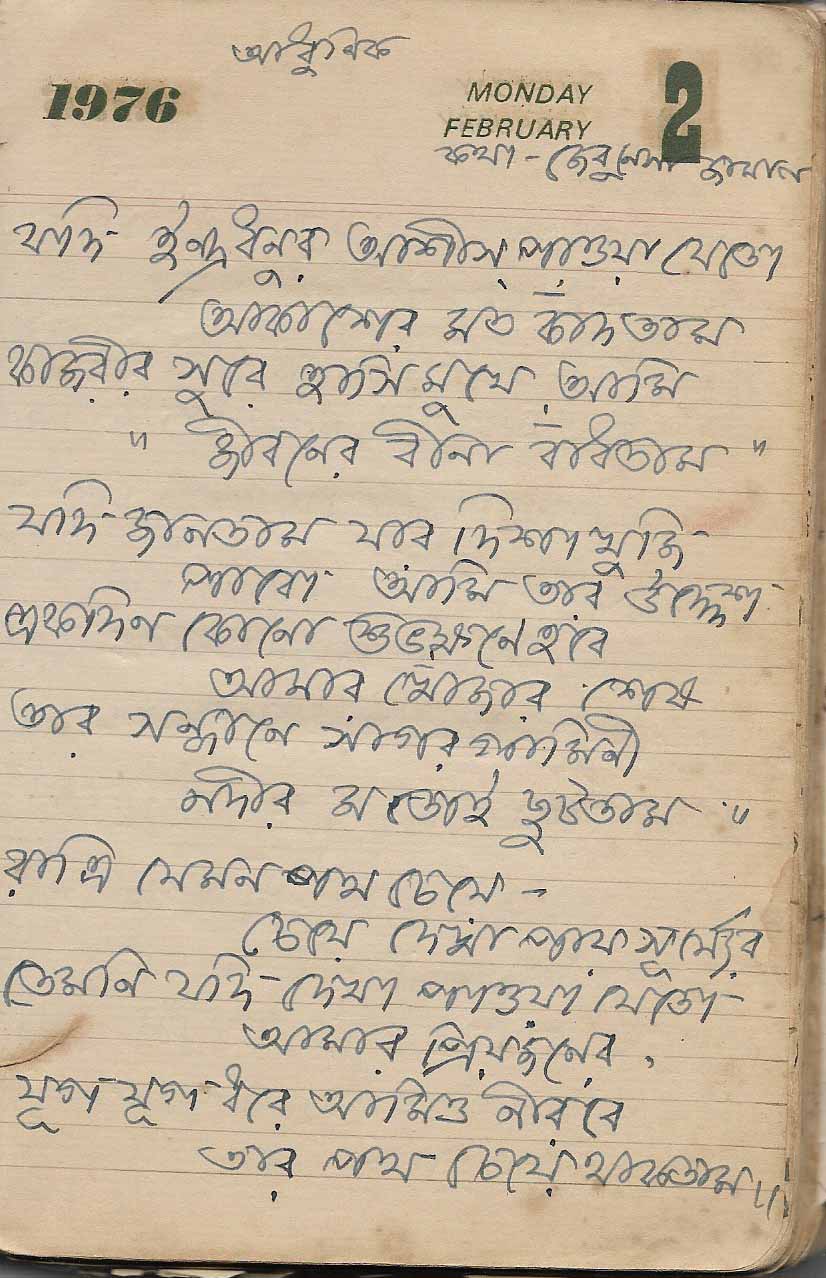 আধুনিক
1976
MONDAY
FEBRUARY
2
কথা - জেবুন্নেসা জামাল
যদি ইন্দ্রধনুর আশীস্ পাওয়া যেতো
আকাশের মত কাঁদতাম
কাজরীর সুরে হাসি মুখে আমি
" জীবনের বীনা বাঁধতাম "
যদি জানতাম যার দিশা খুজি
পাবো আমি তার উদ্দেশ
একদিন কোনো শুভক্ষনে হবে
আমার খোজার শেষ
তার সন্ধানে সাগর গামিনী
নদীর মতোই ছুটতাম "
রাত্রি যেমন পথ চেয়ে -
চেয়ে দেখা পায় সূর্য্যের
তেমনি যদি দেখা পাওয়া যেতো
আমার প্রিয়জনের ,
যূগ যূগ ধরে আমিও নীরবে
তার পথ চেয়ে থাকতাম "